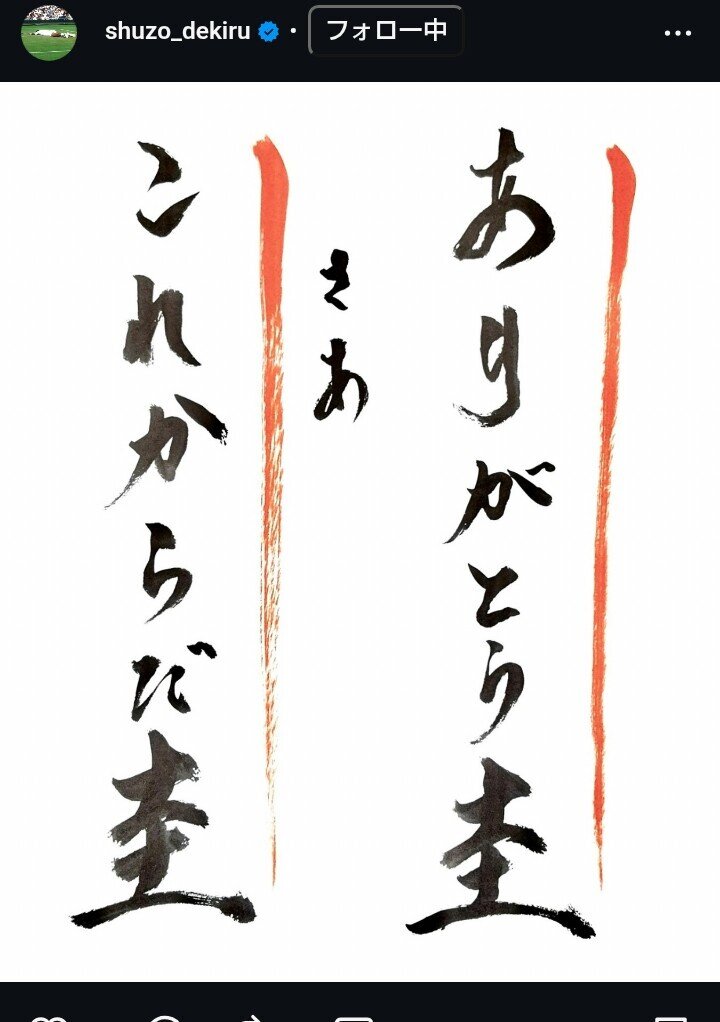 shuzo_dekiru • フォロー中
ありがとう圭
さあ
これからだ圭